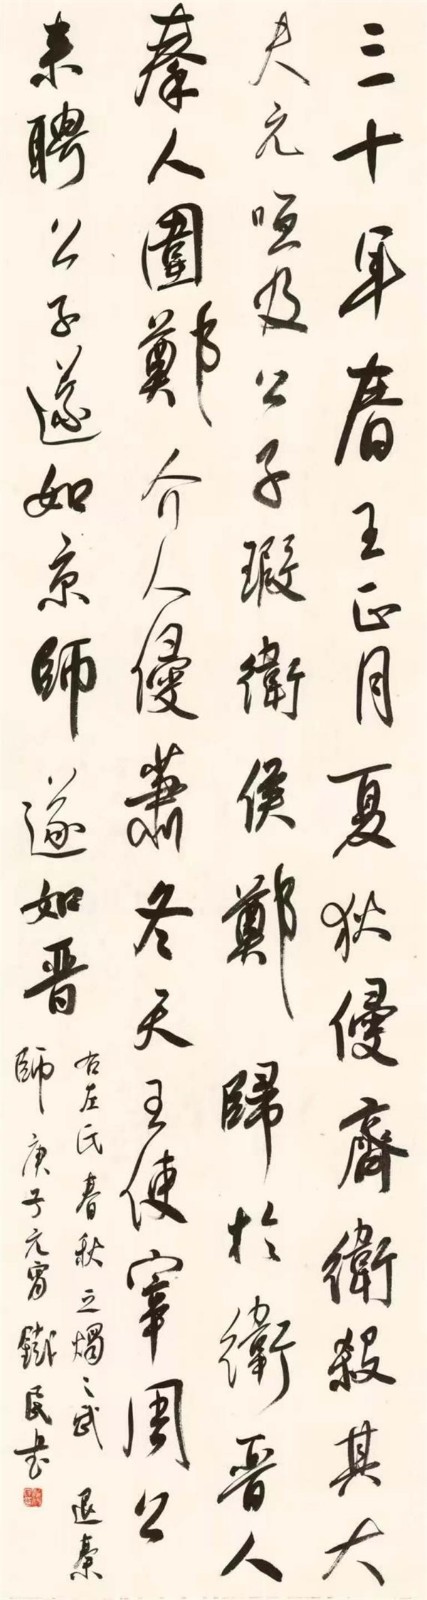 三十年春王正月夏狄侵齊衛殺其大
夫元咺及公子瑕衛侯鄭歸於衛晉人
秦人圍鄭介人侵蕭冬天王使宰周公
来聘公子遂如京師遂如晋
右左氏春秋之燭之武退秦
師庚子元宵鐵民书